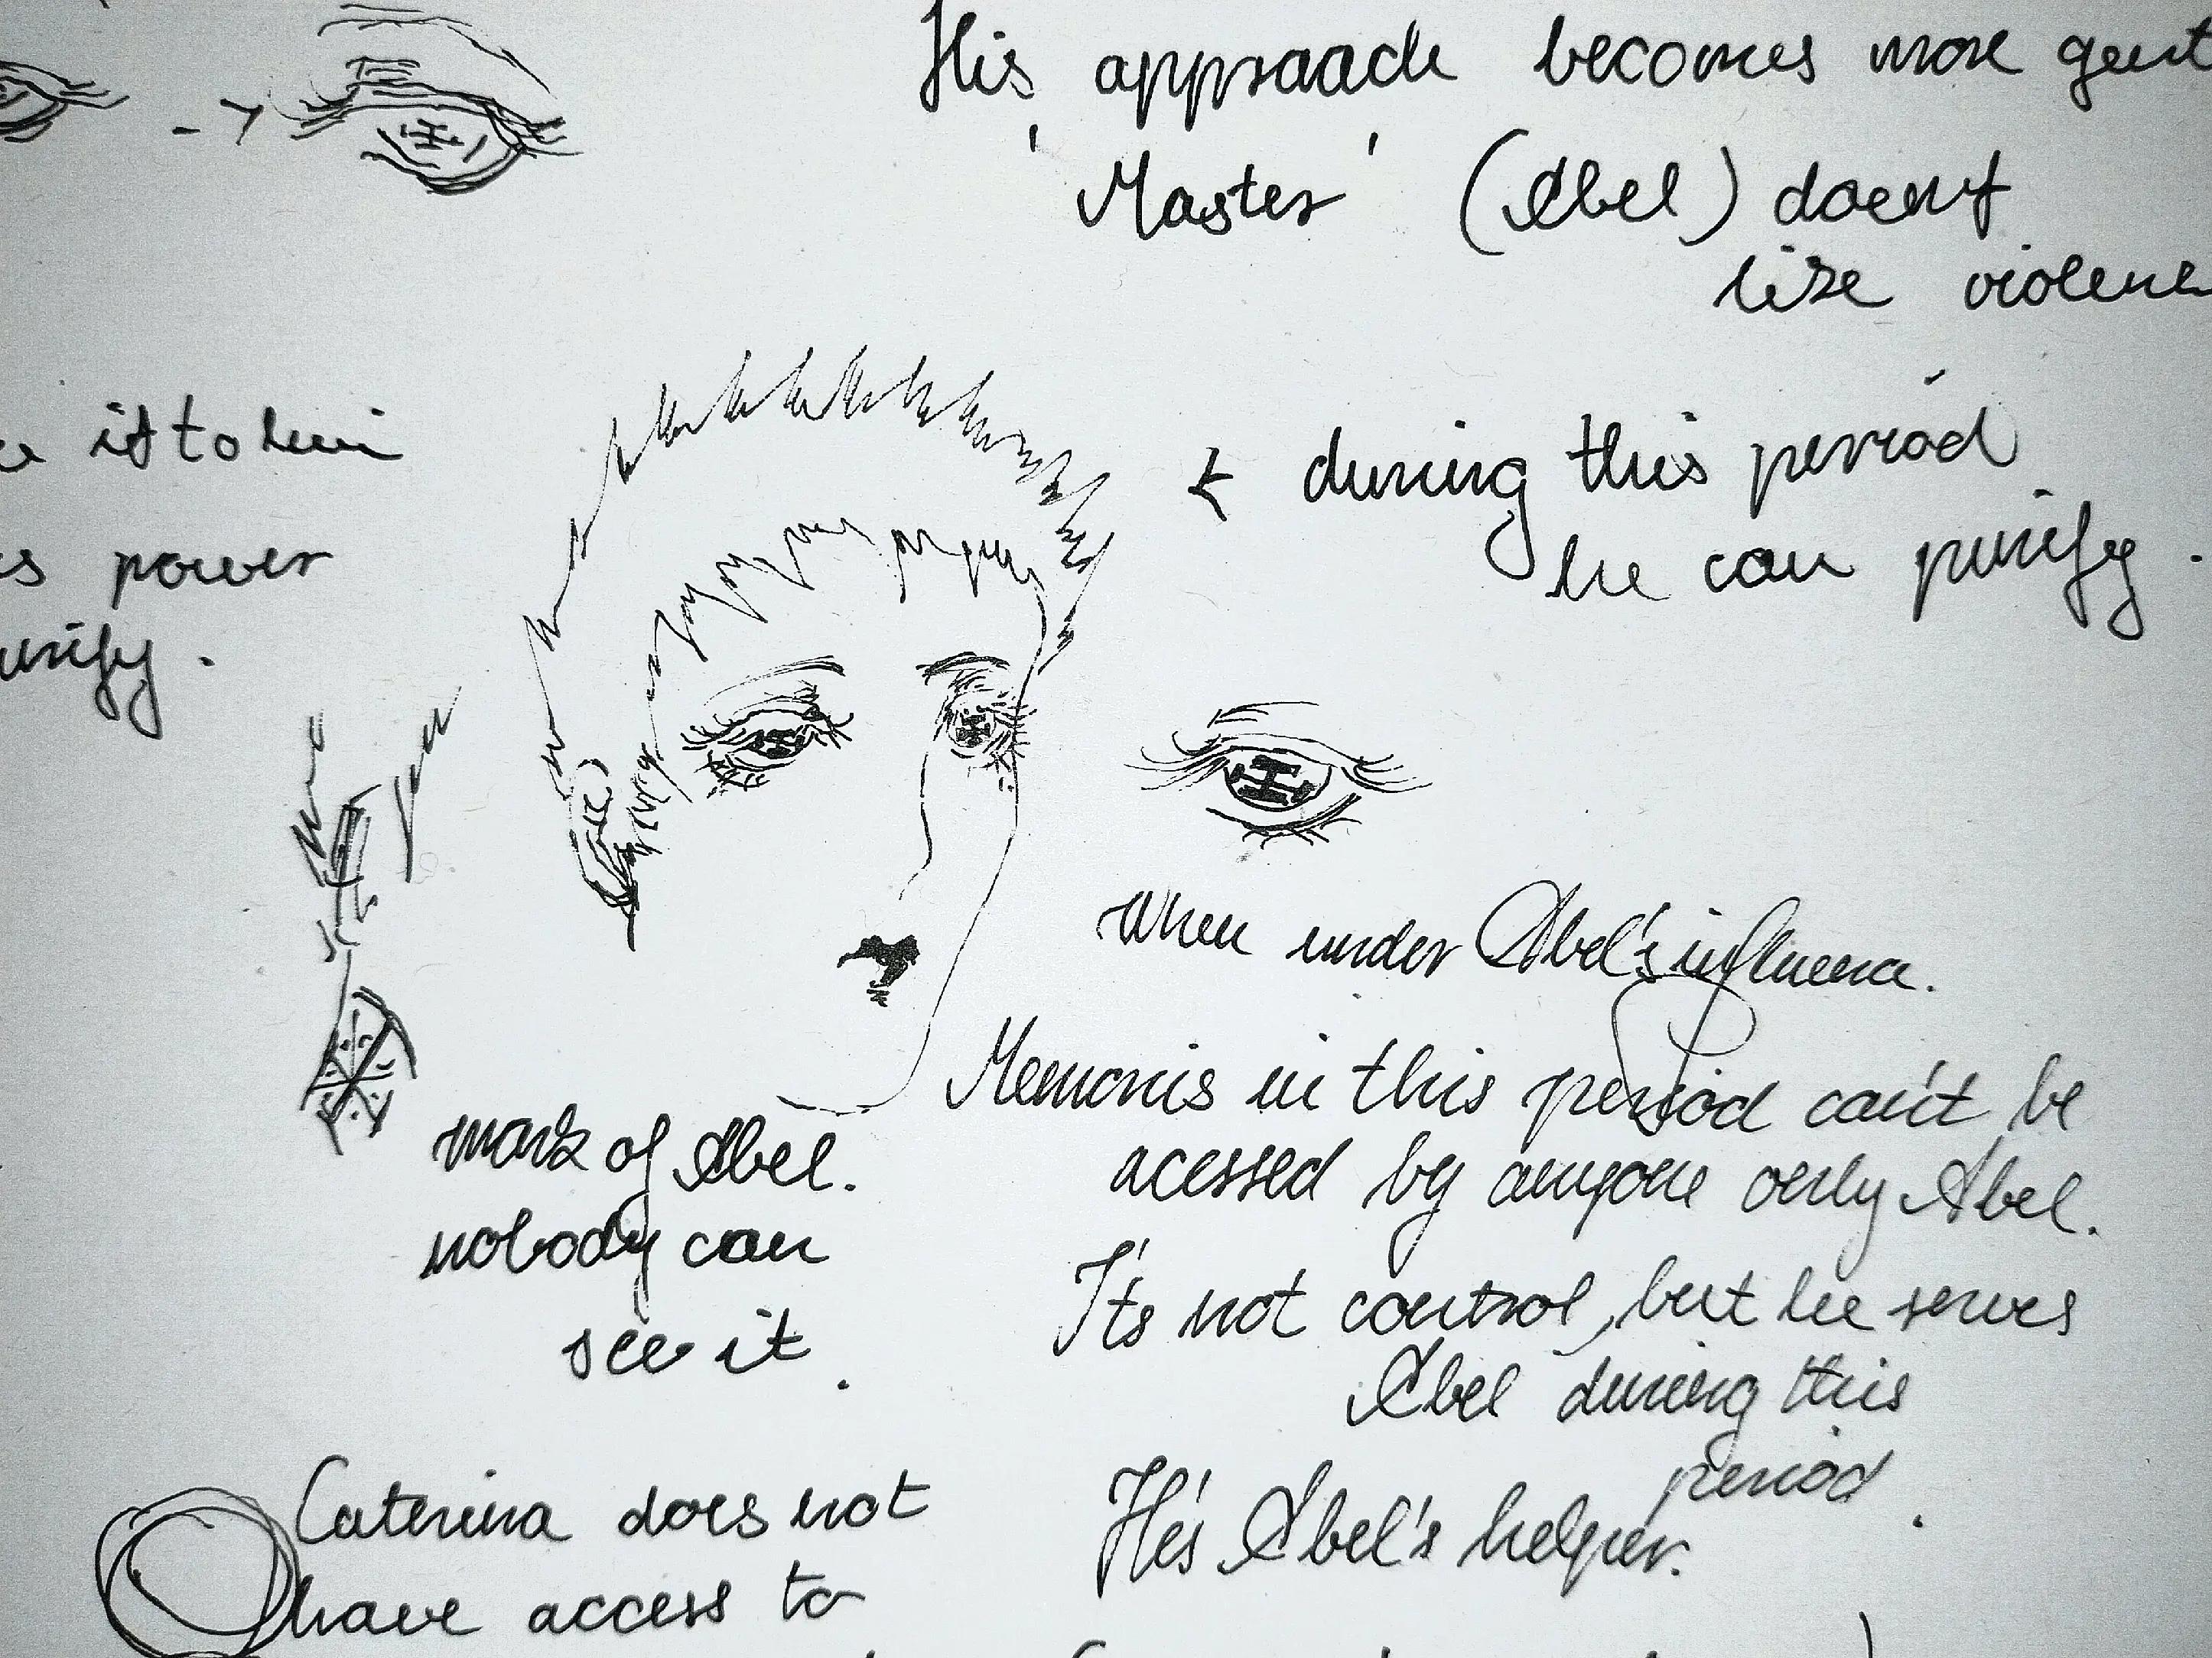 His appraach becomes more gent
'Master' (Abel) doesn't
like violenc
it to him
s power
urify.
during this period
he can purify.
When under Abel's influence.
Memoris in this period can't be
acessed by anyone only Abel.
It's not control, but he serves
Abel during this
period.
He's Abel's helper.
mark of Abel.
nobody can
see it.
Caterina does not
have access to